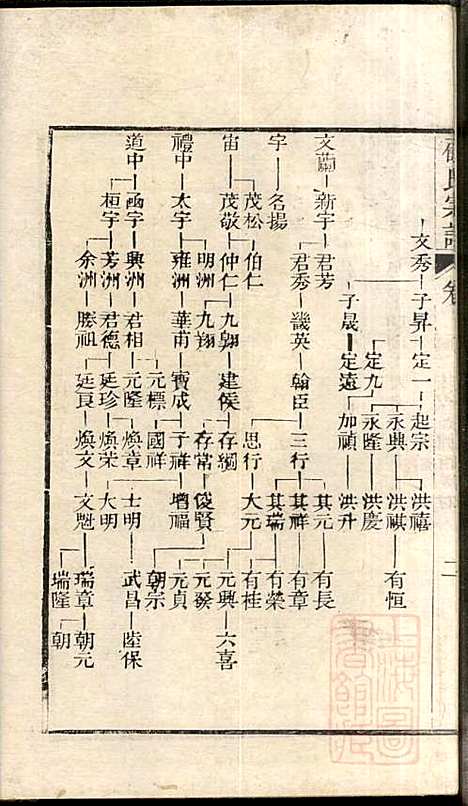 氏宗譜 卷
二
文秀 子昇 定一 起宗 洪禧
永興 洪祺 有恒
定九 永隆 洪慶
子晟 定遠 加禎 洪升
文蘭 新宇 君芳
君秀 畿英 翰臣 三行 其元 有長
其祥 有章
其瑞 有榮
宇 名揚
宙 茂松 伯仁
思行 大元 有桂
茂敬 仲仁 九翱 建侯 存獨 元興 六喜
九翔 存常 俊賢 元發
元貞
禮中 太宇 明洲
雍洲 華甫 寶成 子祥 增福
元標 國祥 朝宗
道中 函宇 興洲 君相 元隆 煥章 士明 武昌 陞保
桓宇 芳洲 君德 廷珍 煥荣 大明
余洲 勝祖 廷良 煥文 文魁 瑞章 朝元
瑞隆 朝
上海圖書館藏